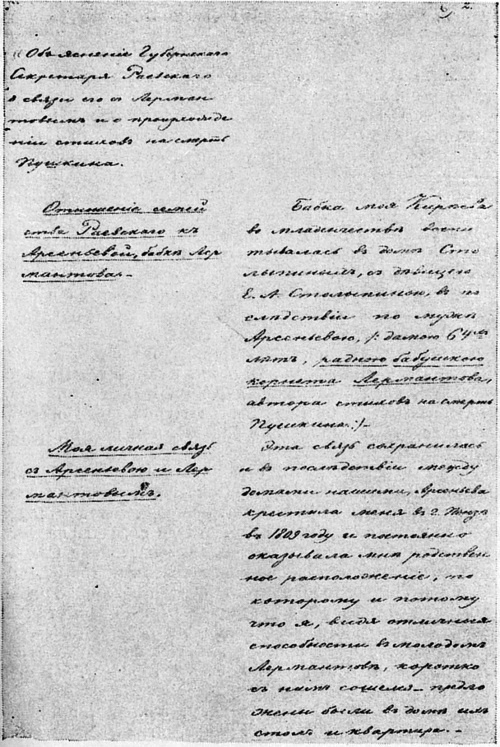 2.
„Объясненіе Губернскаго
Секретаря Раевскаго
о связи его съ Лерман
товымъ и о происхожде
ніи стиховъ на смерть
Пушкина.
Отношеніе семей
ства Раевскаго къ
Арсеньевой, бабкѣ Лер
мантова.
Бабка моя Киреева
во младенчествѣ воспи
тывалась въ домѣ Сто
лыпиныхъ, съ дѣвицею
Е. А. Столыпиною, въ по
слѣдствіи по мужѣ
Арсеньевою, /: дамою 64хъ
лѣтъ, родною бабушкою
корнета Лермантова,
автора стиховъ на смерть
Пушкина :/.
Моя личная связь
съ Арсеньевою и Лер
мантовымъ.
Эта связь сохранилась
и въ послѣдствіи между
домами нашими, Арсеньева
крестила меня въ г. Пензѣ
въ 1809 году и постоянно
оказывала мнѣ родствен
ное расположеніе, по
которому и потому
что я, видя отличныя
способности въ молодомъ
Лермантовѣ, коротко
съ нимъ сошелся предло
жены были въ домѣ ихъ
столъ и квартира.